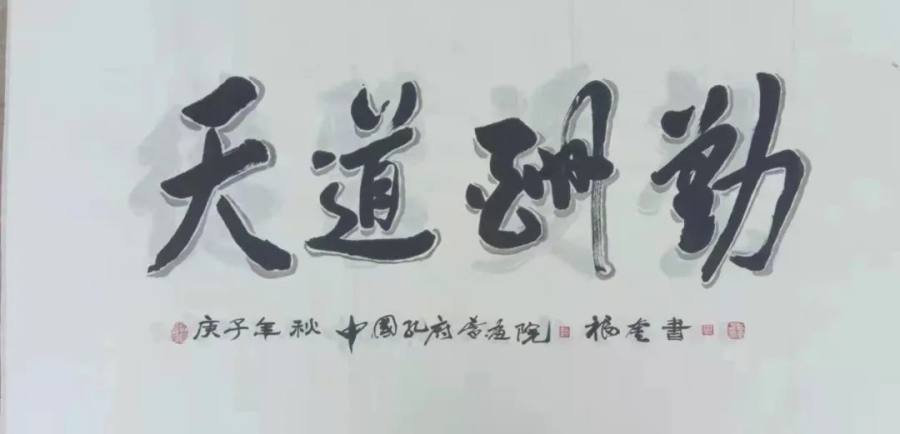 天道酬勤
庚子年秋 中國孔府書畫院 楊奎書